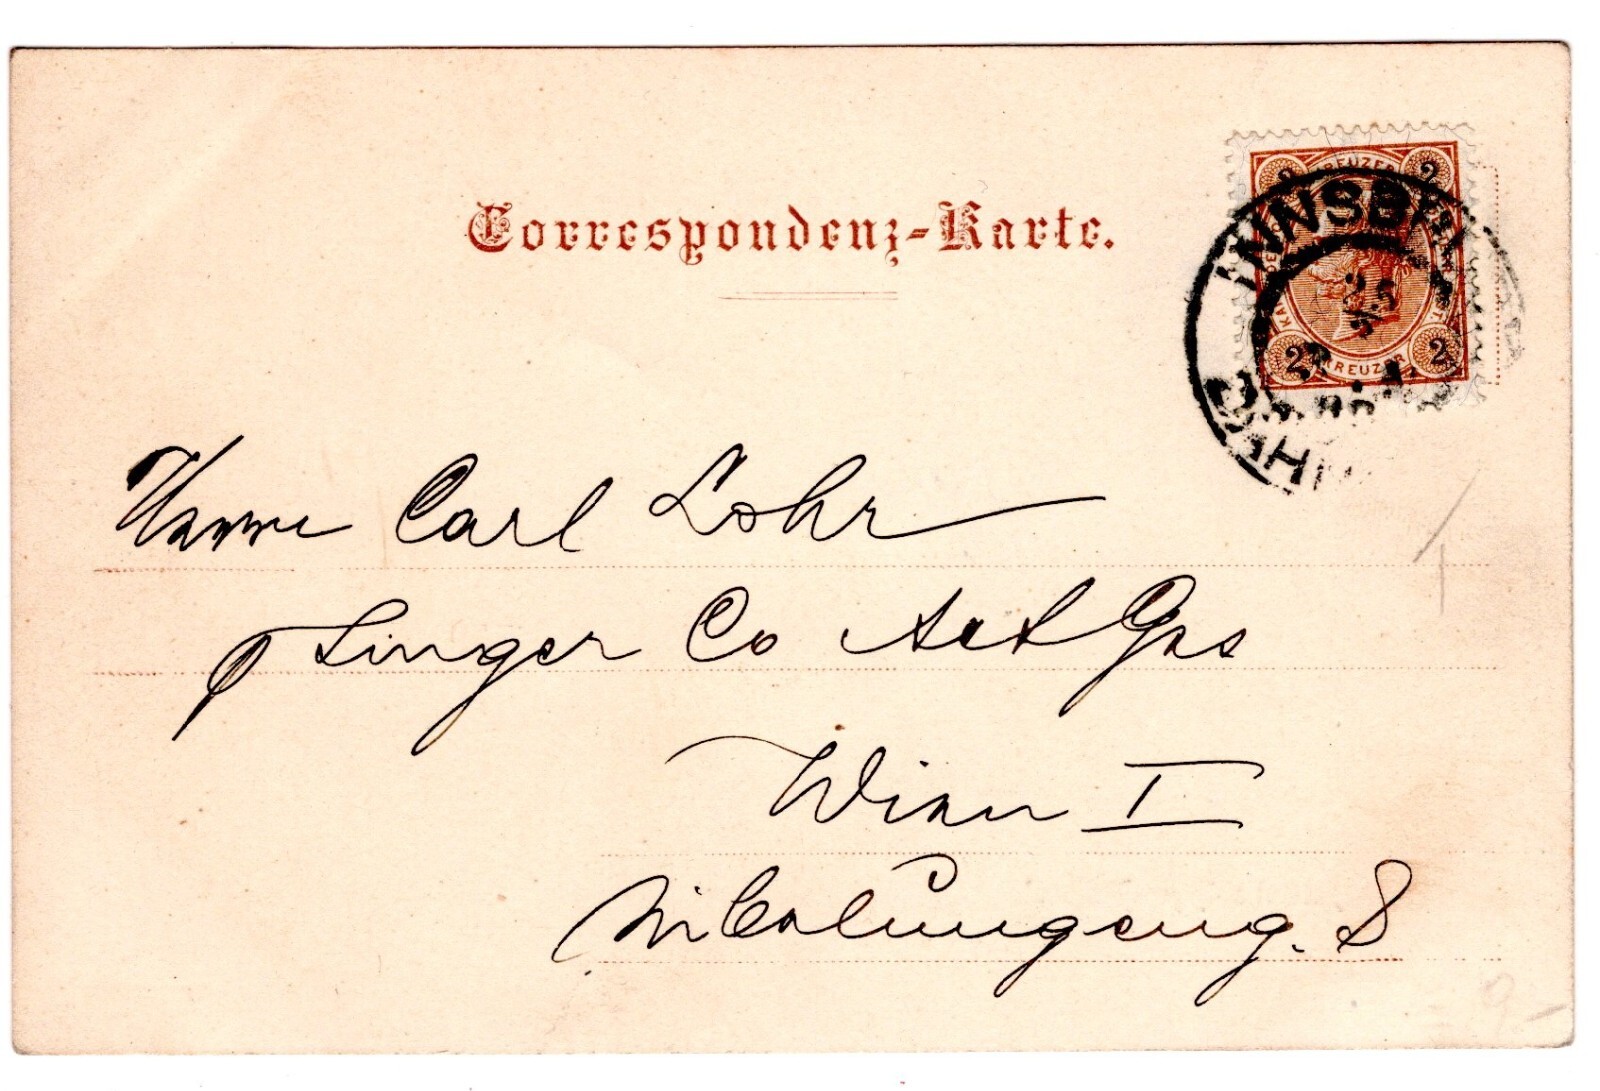 Correspondenz-Karte.
2 KREUZER 2
INNSBR
25
2 KREUZER 2
Herrn Carl Lohr
p Singer Co Act Ges
Wien I
8